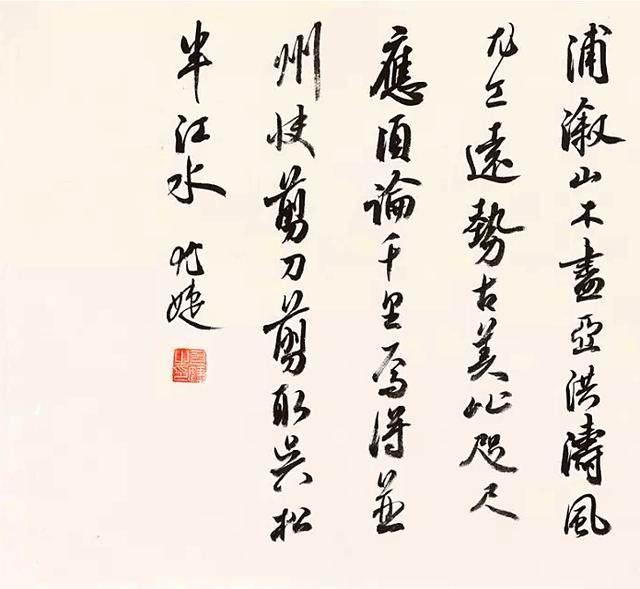 浦溆山木盡亞洪濤風
尤工遠勢古莫比咫尺
應須論千里焉得並
州快剪刀剪取吳松
半江水